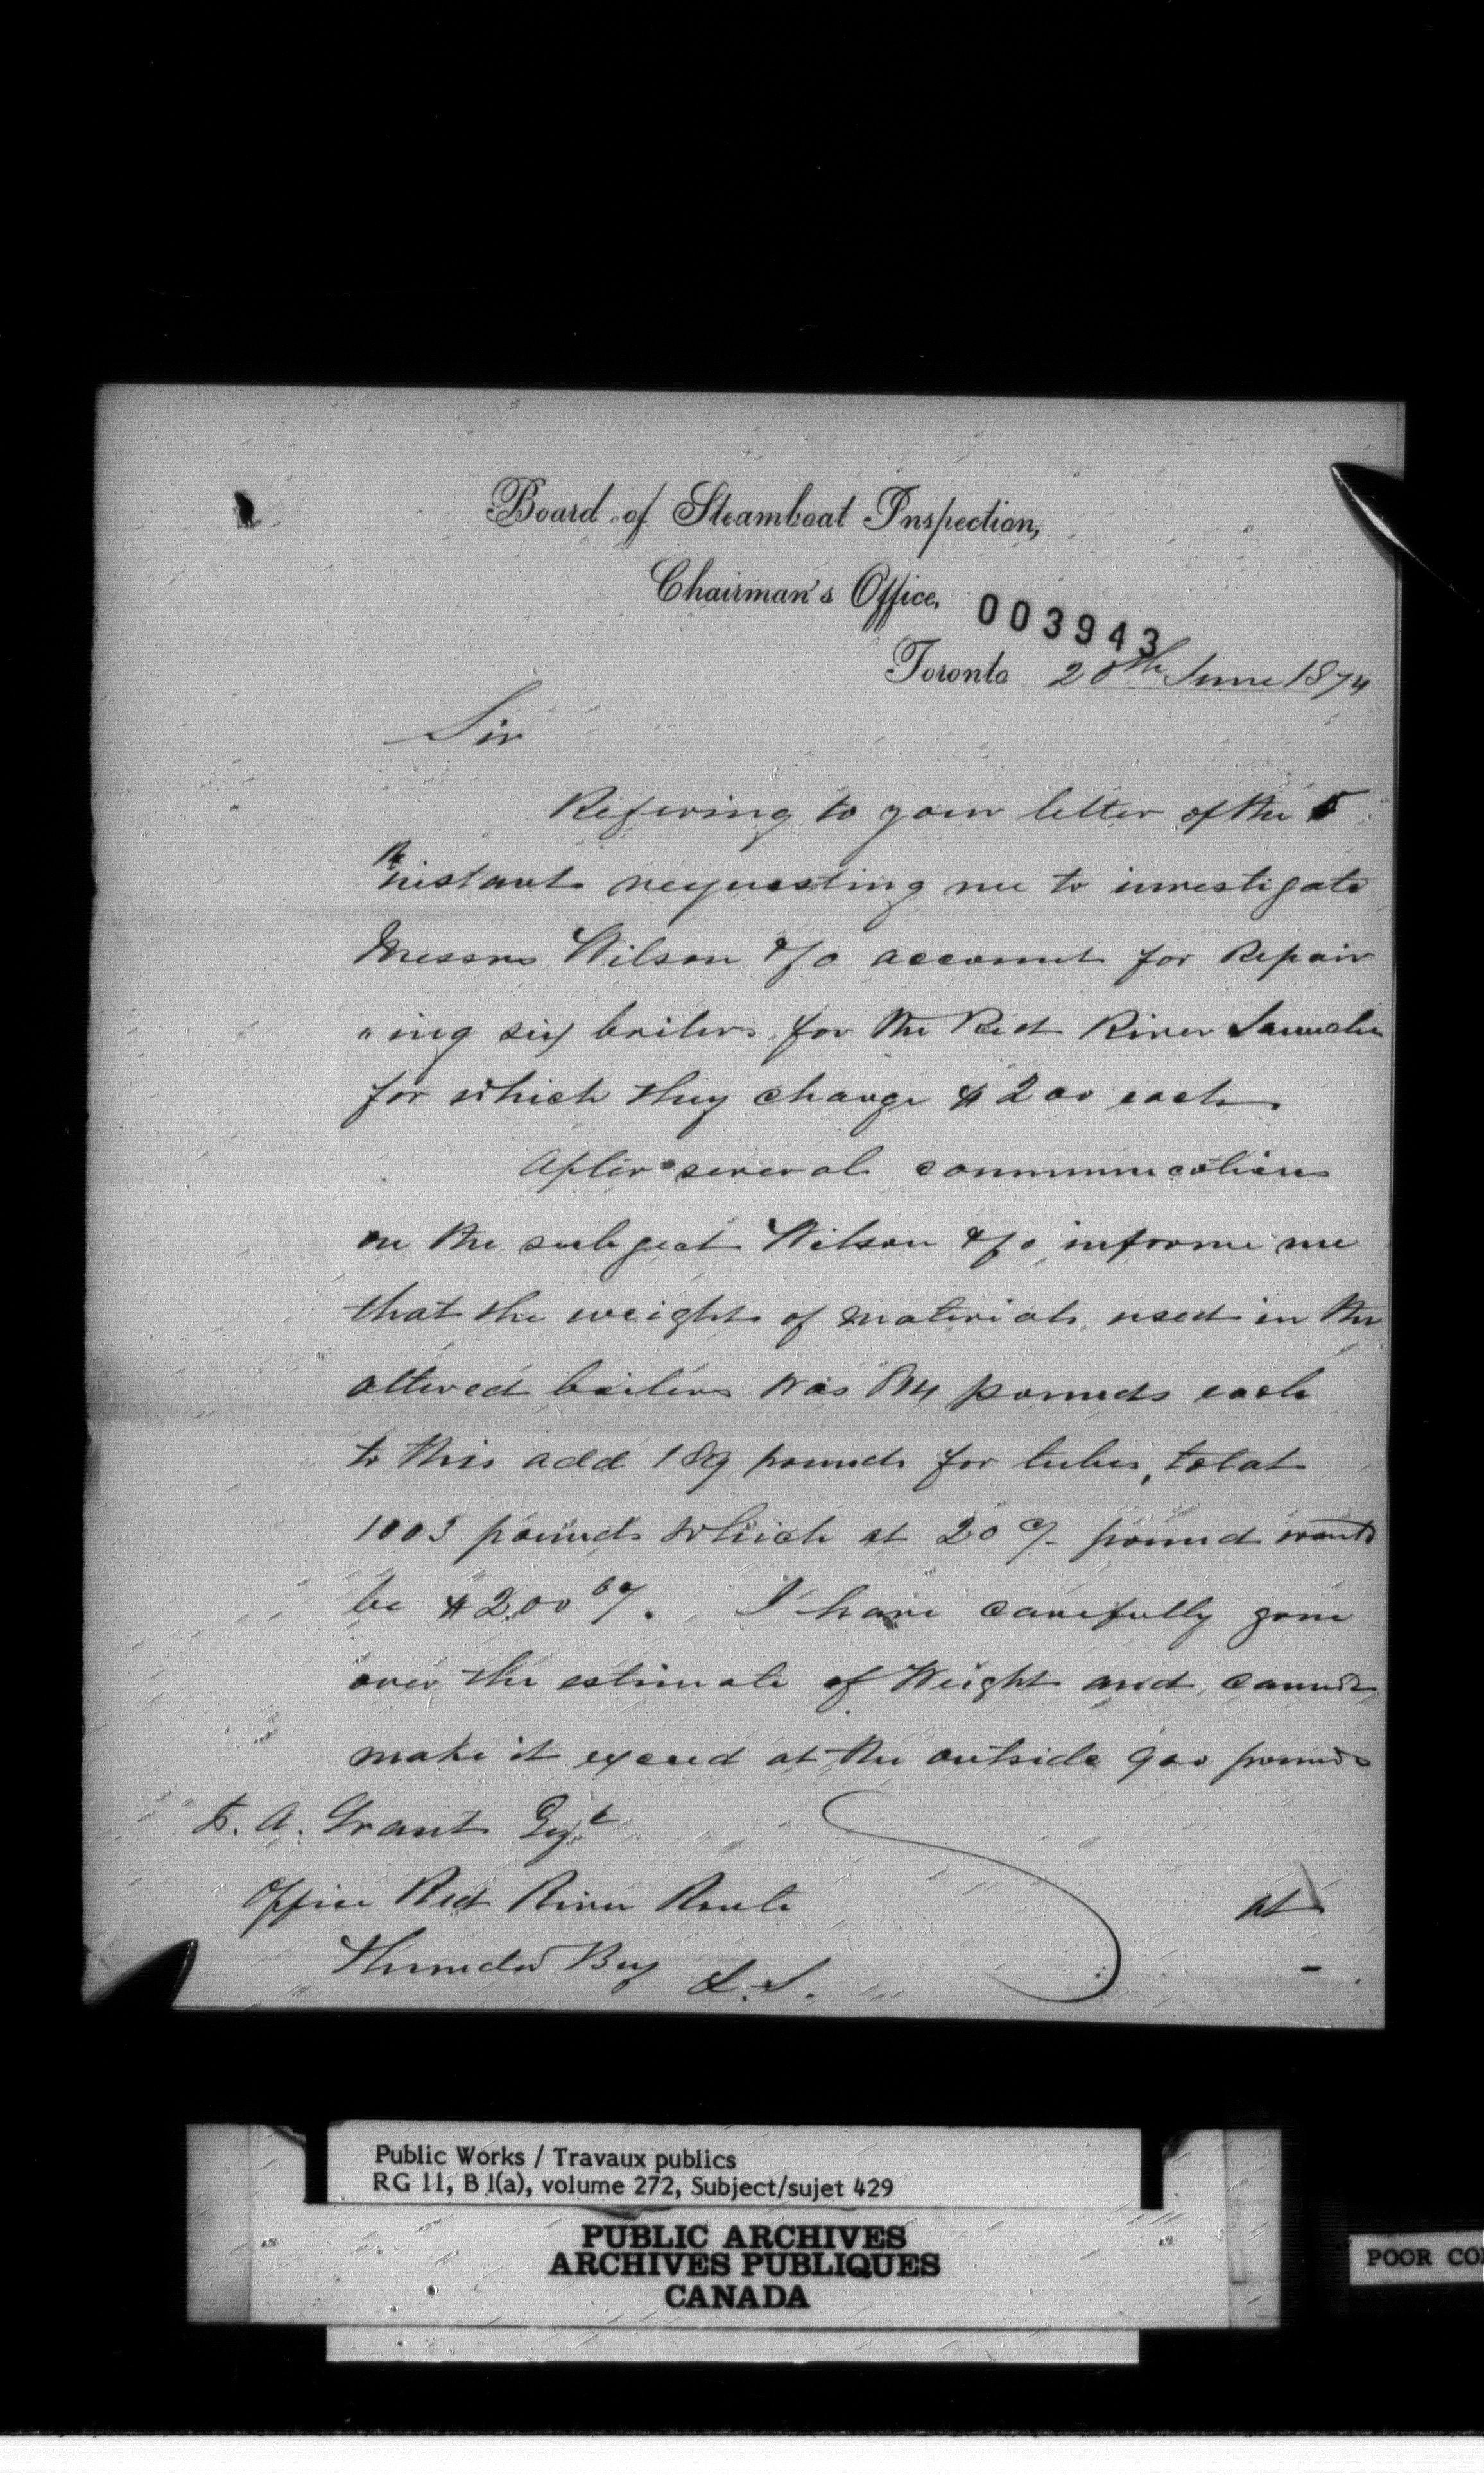 Board of Steamboat Inspection,
Chairman's Office,
003943
Toronto 20th June 1874
Sir
Refering to your letter of the 5
th instant requesting me to investigate
Messrs Wilson & Co account for Repair
"ing six boilers for the Red River Launches
for which they charge $200 each
After several communications
on the subject Wilson & Co informe me
that the weight of materials used in the
altered boilers was 814 pounds each
to this add 189 pounds for tubes, total
1003 pounds which at 20 c/. pound would
be $200 60/. I have carefully gone
over the estimate of Weight and cannot
make it exceed at the outside 900 pounds
at
F. A. Grant Esqr
Office Red River Route
Thunder Bay L.S.
Public Works / Travaux publics
RG 11, B 1(a), volume 272, Subject/sujet 429
PUBLIC ARCHIVES
ARCHIVES PUBLIQUES
CANADA
POOR CO